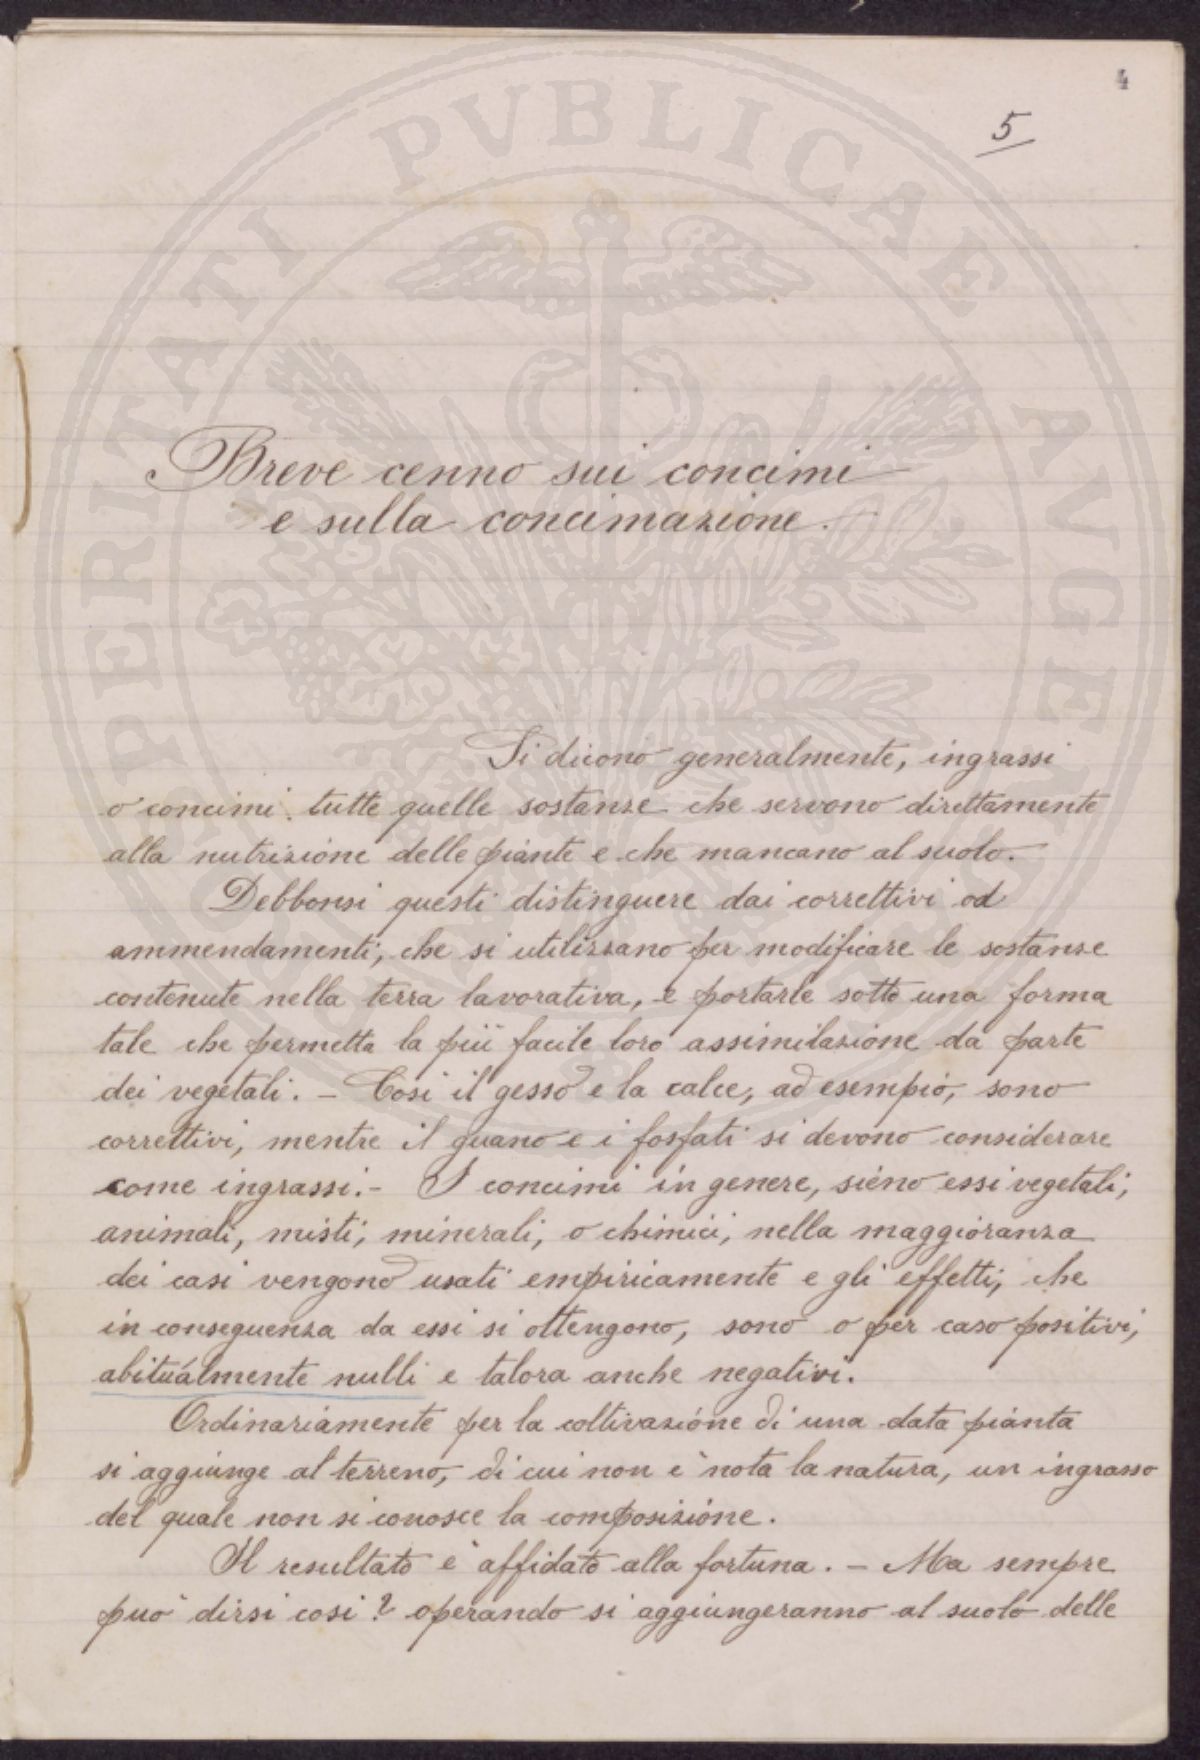 4
5
Breve cenno sui concimi
e sulla concimazione.
Si dicono generalmente, ingrassi
o concimi tutte quelle sostanze che servono direttamente
alla nutrizione delle piante e che mancano al suolo.
Debbonsi questi distinguere dai correttivi od
ammendamenti, che si utilizzano per modificare le sostanze
contenute nella terra lavorativa, e portarle sotto una forma
tale che permetta la più facile loro assimilazione da parte
dei vegetali. – Così il gesso e la calce, ad esempio, sono
correttivi, mentre il guano e i fosfati si devono considerare
come ingrassi. – I concimi in genere, sieno essi vegetali,
animali, misti, minerali, o chimici, nella maggioranza
dei casi vengono usati empiricamente e gli effetti, che
in conseguenza da essi si ottengono, sono o per caso positivi,
abitualmente nulli e talora anche negativi.
Ordinariamente per la coltivazione di una data pianta
si aggiunge al terreno, di cui non è nota la natura, un ingrasso
del quale non si conosce la composizione.
Il resultato è affidato alla fortuna. – Ma sempre
può dirsi così? operando si aggiungeranno al suolo delle
PVBLICAE AVGE
SPERITATI